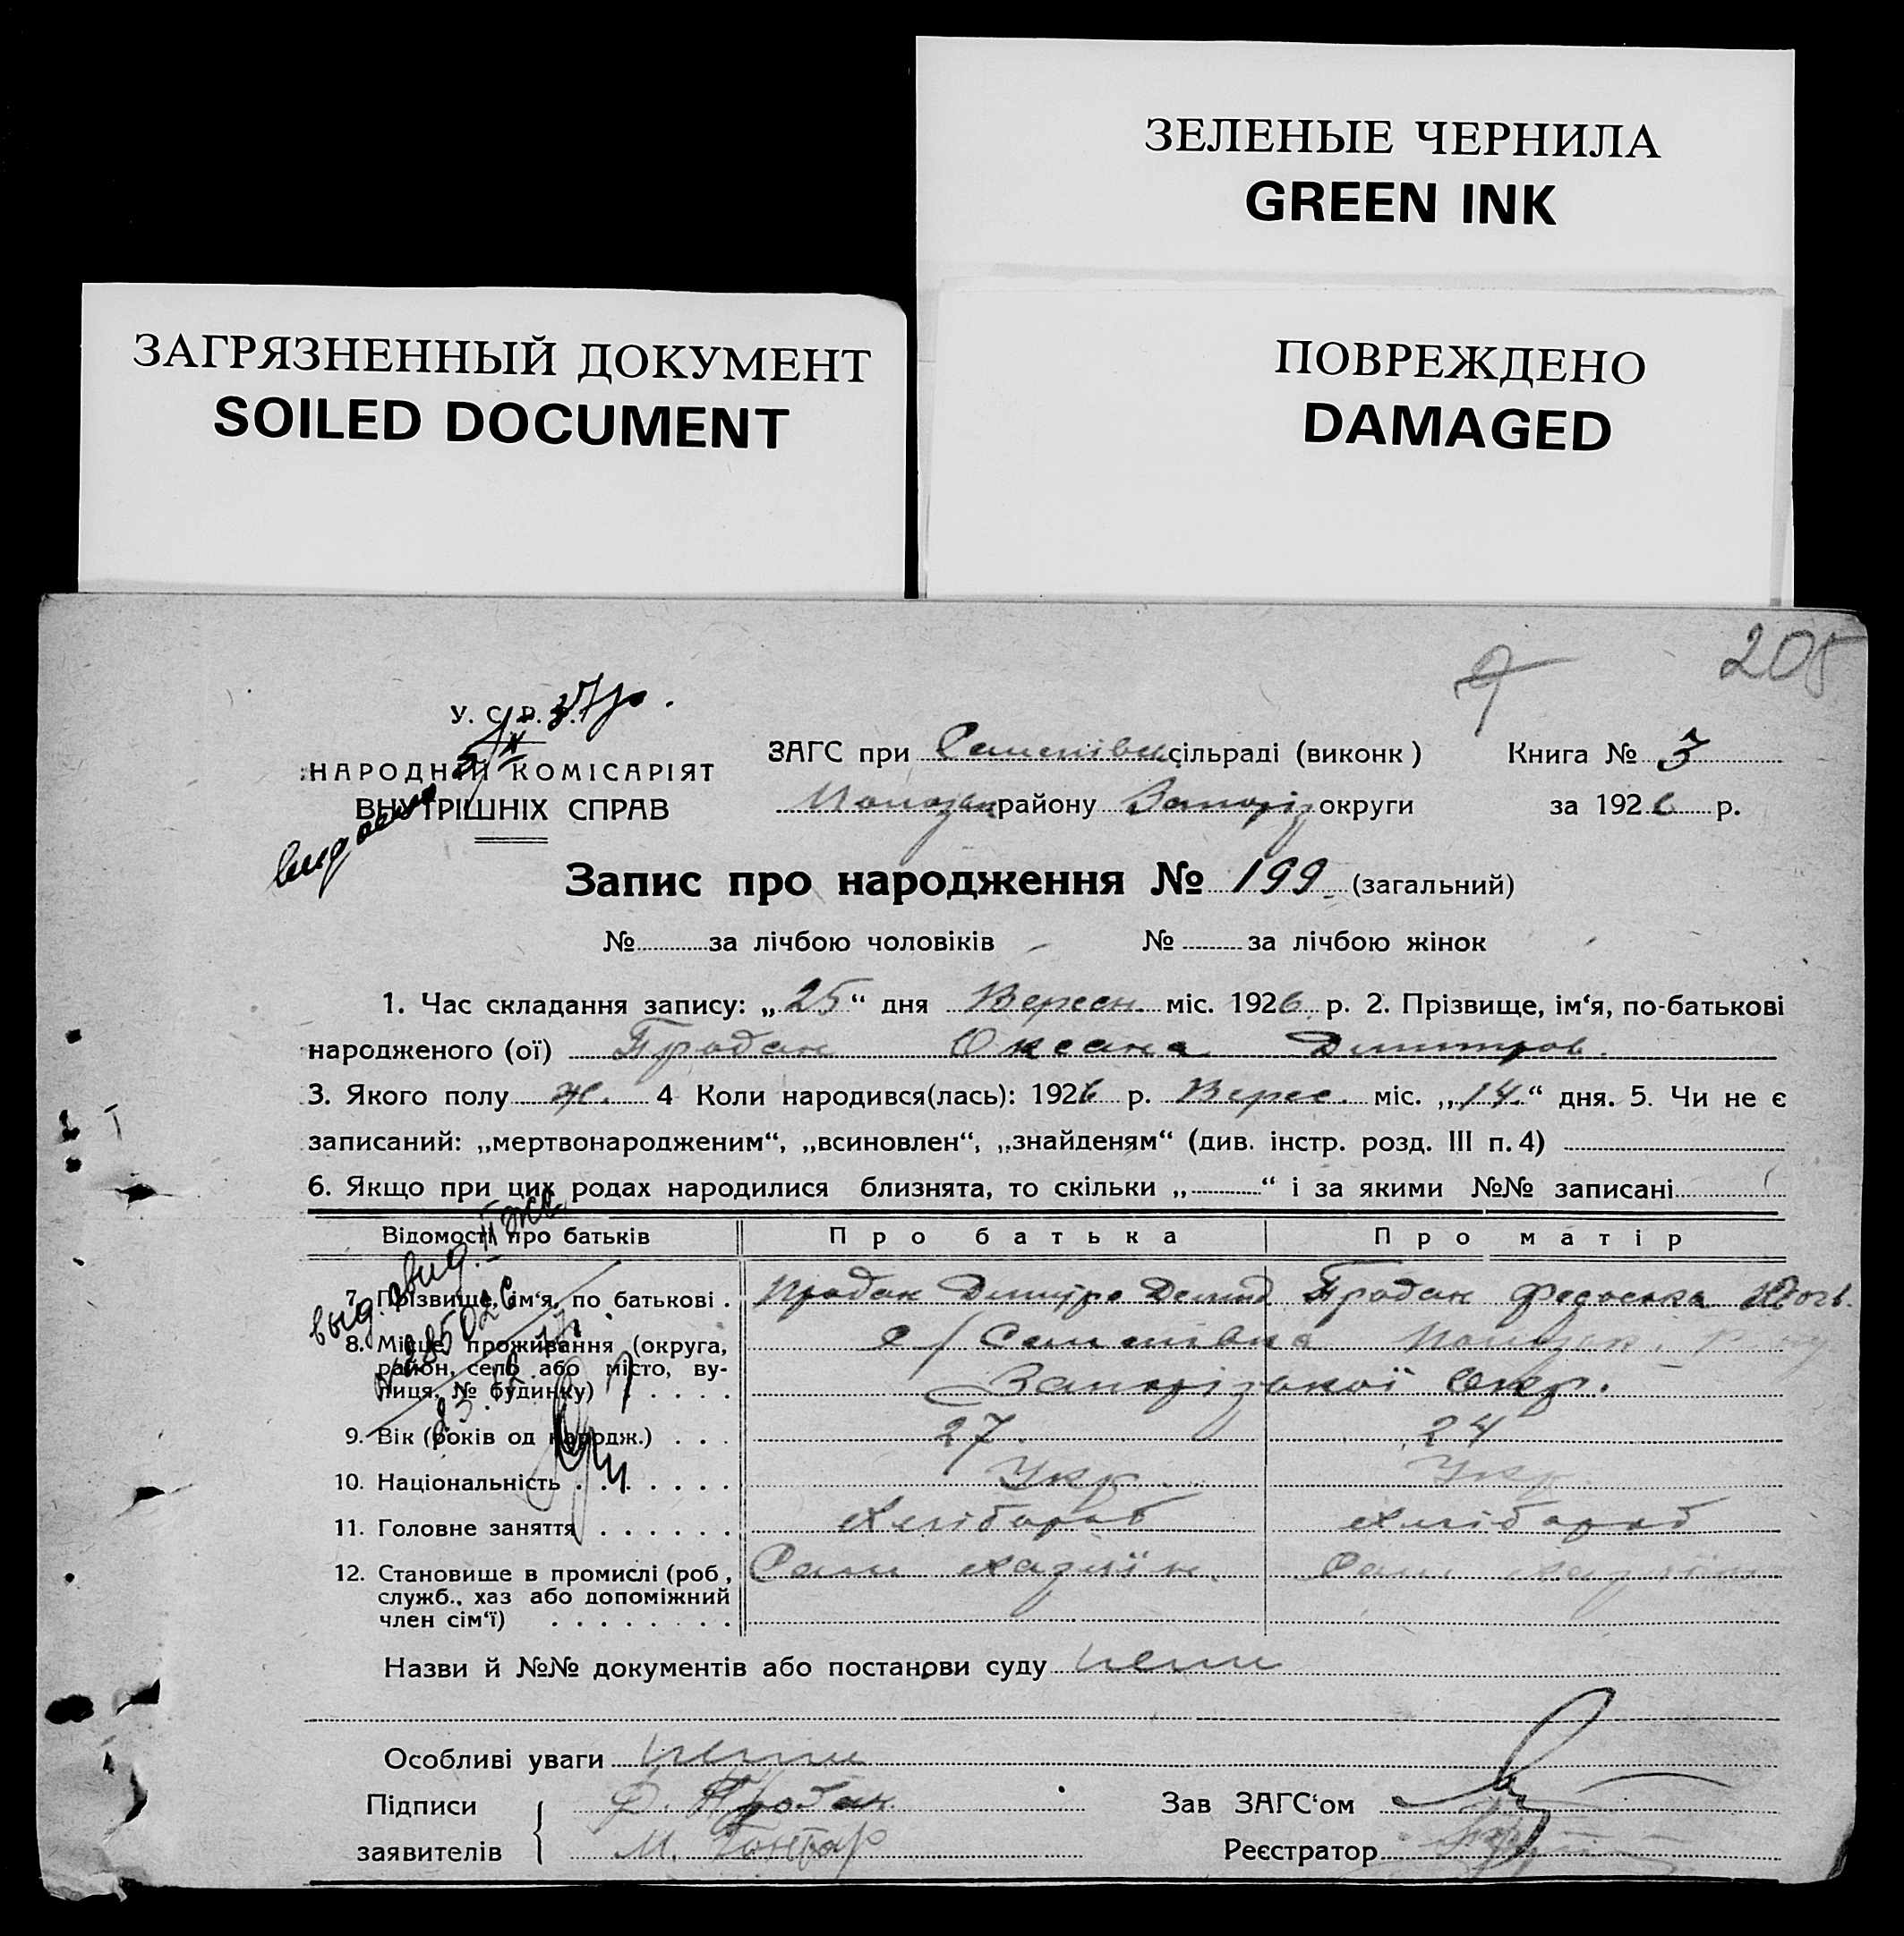 ЗЕЛЕНЫЕ ЧЕРНИЛА
GREEN INK
ЗАГРЯЗНЕННЫЙ ДОКУМЕНТ
SOILED DOCUMENT
ПОВРЕЖДЕНО
DAMAGED
205
У. С. Р. Р.
НАРОДНІЙ КОМІСАРІЯТ
ВНУТРІШНІХ СПРАВ
ЗАГС при сільраді (виконк) Книга № 3
району Запоріз округи за 1926 р.
Запис про народження № 199 (загальний)
№ за лічбою чоловіків № за лічбою жінок
1. Час складання запису: „25“ дня Вересн. міс. 1926 р. 2. Прізвище, ім‘я, по-батькові
народженого (ої) Продан Оксана Дмитров.
3. Якого полу ж. 4 Коли народився(лась): 1926 р. Верес. міс. „14.“ дня. 5. Чи не є
записаний: „мертвонародженим“, „всиновлен“, „знайденям“ (див. інстр. розд. III п. 4)
6. Якщо при цих родах народилися близнята, то скільки „ “ і за якими №№ записані
Відомості про батьків Про батька Про матір
7. Прізвище, ім‘я, по батькові . Продан Дмитро Демид Продан Федоська
8. Місце проживання (округа, с/
район, село або місто, ву-
лиця, № будинку) . . . . . Запорізької Окр.
9. Вік (років од народж.) . . . 27 24
10. Національність . . . . . . . Укр. Укр.
11. Головне заняття . . . . . . Хлібороб Хлібороб
12. Становище в промислі (роб, Сам хазяїн. Сам хазяїн
служб., хаз або допоміжний
член сім‘ї) . . . . . . . .
Назви й №№ документів або постанови суду нема
Особливі уваги нема
Підписи Д. Продан Зав ЗАГС‘ом
заявителів М. Гонтар Реєстратор